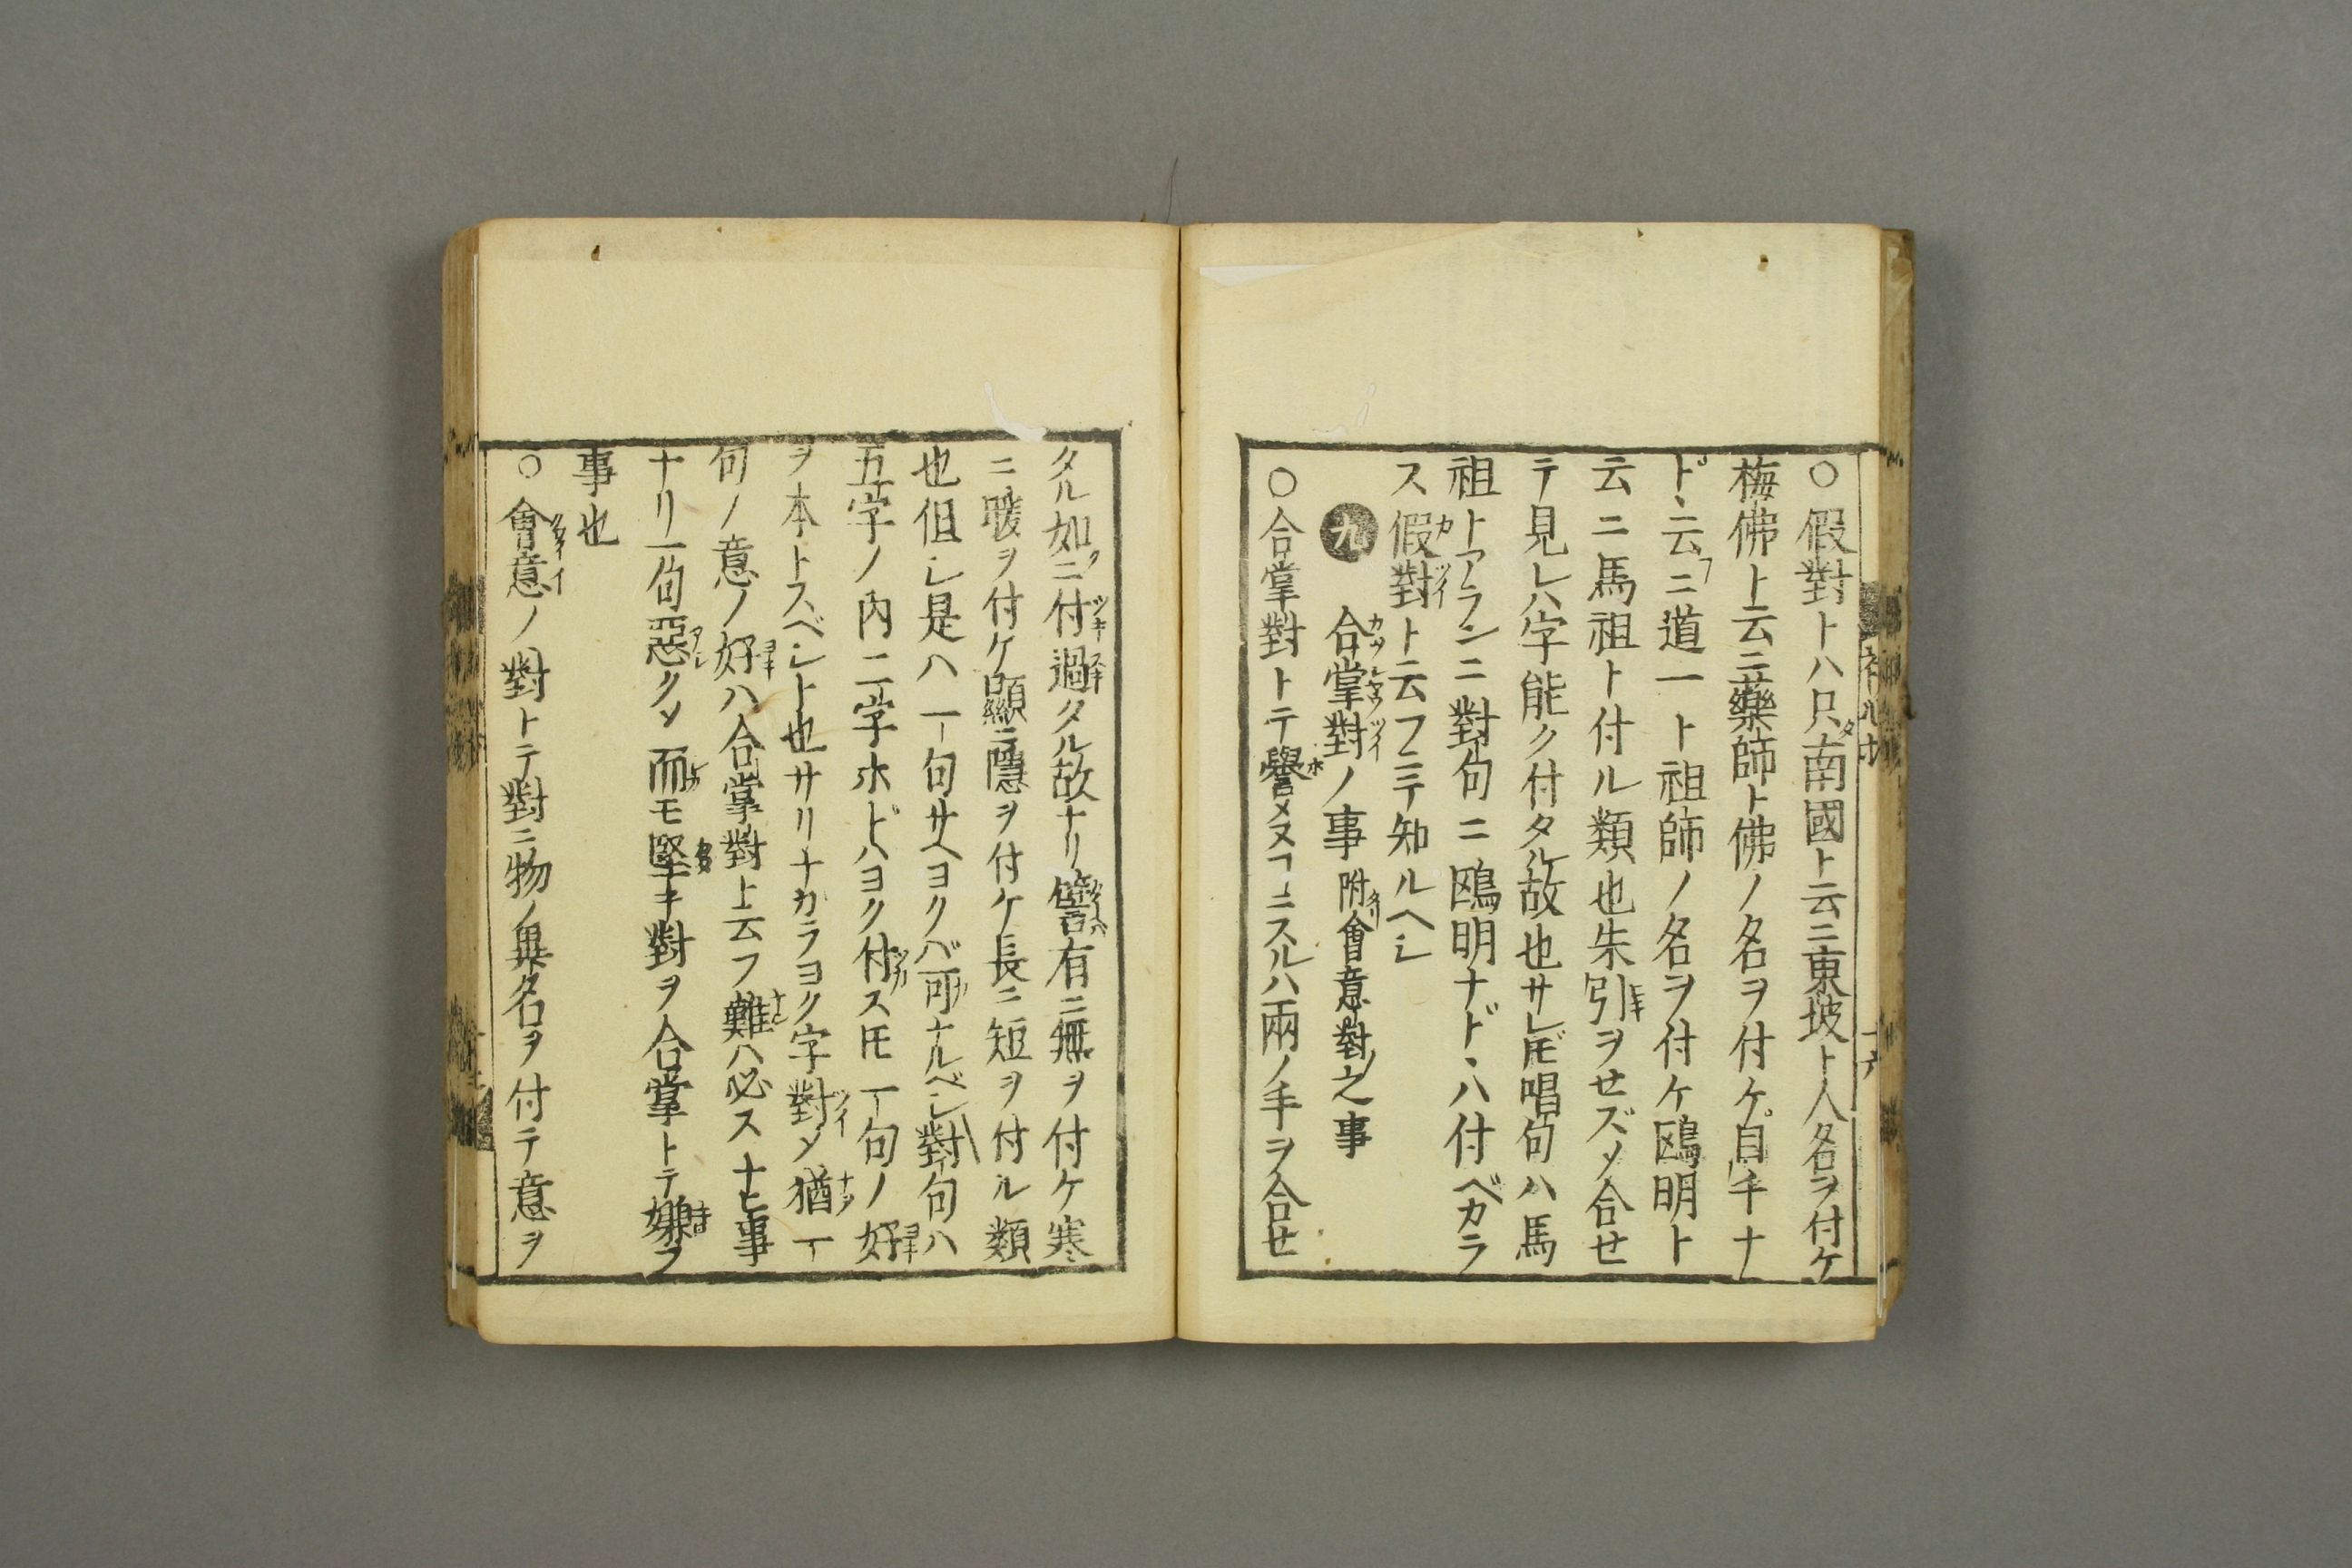 ○假對トハ只南國ト云ニ東坡ト人名ヲ付ケ
梅佛ト云ニ藥師ト佛ノ名ヲ付ケ自千ナ
ド、云ニ道一ト祖師ノ名ヲ付ケ鴎明ト
云ニ馬祖ト付ル類也朱引ヲセズメ合せ
テ見レハ字能ク付タル故也サレ𪜈唱句ハ馬
祖トアランニ對句ニ鴎明ナド、ハ付ベカラ
ス假對ト云フニテ知ルヘシ
九 合掌對ノ事 附會意對ノ之事
○合掌對トテ譽メヌヿニスルハ兩ノ手ヲ合せ
タル如ニ付過タル故ナリ譬有ニ無ヲ付ケ寒
ニ暖ヲ付ケ顯ニ隱ヲ付ケ長ニ短ヲ付ル類
也但シ是ハ一句サヘヨクバ可ナルベシ對句ハ
五字ノ内二字ホドハヨク付ス𪜈一句ノ好
ヲ本トスベシト也サリナカラヨク字對メ猶一
句ノ意ノ好ハ合掌對ト云フ難ハ必ス十七事
ナリ一句惡クメ而モ堅キ對ヲ合掌トテ嫌フ
事也
○會意ノ對トテ對ニ物ノ異名ヲ付テ意ヲ